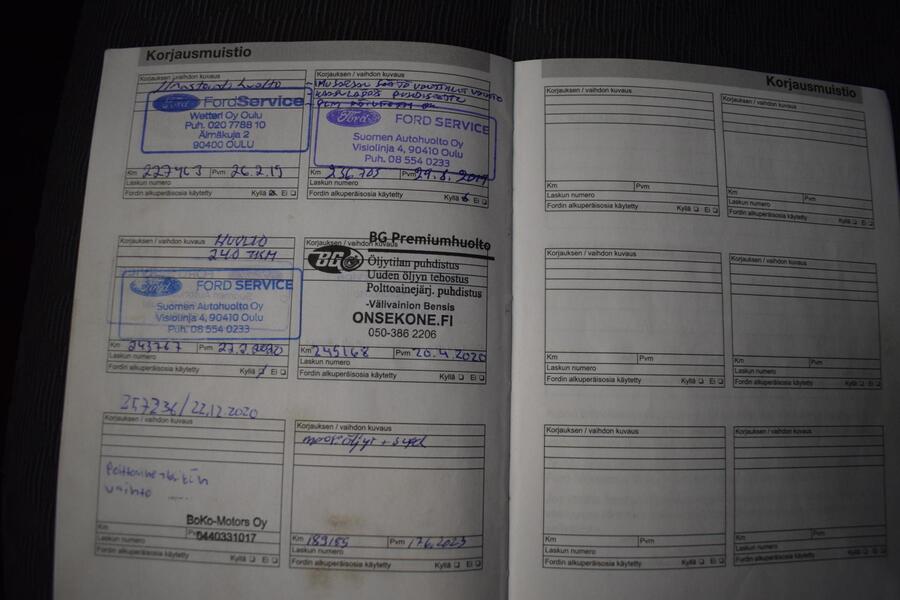 Korjausmuistio
Korjauksen / vaihdon kuvaus
Ford FordService
Wetteri Oy Oulu
Puh. 020 7788 10
Älmäkuja 2
90400 OULU
Km 227463 Pvm 26.2.19
Laskun numero
Fordin alkuperäisosia käytetty Kyllä Ei
Korjauksen / vaihdon kuvaus
Ford FORD SERVICE
Suomen Autohuolto Oy
Visiolinja 4, 90410 Oulu
Puh. 08 554 0233
Km 236.705 Pvm 29.8.2019
Laskun numero
Fordin alkuperäisosia käytetty Kyllä Ei
Korjauksen / vaihdon kuvaus HUOLTO
240 TKM
Ford FORD SERVICE
Suomen Autohuolto Oy
Visiolinja 4, 90410 Oulu
Puh. 08 554 0233
Km 243767 Pvm 27.2.2020
Laskun numero
Fordin alkuperäisosia käytetty Kyllä Ei
Korjauksen / vaihdon kuvaus
BG Premiumhuolto
BG
Öljytilan puhdistus
Uuden öljyn tehostus
Polttoainejärj. puhdistus
-Välivainion Bensis
ONSEKONE.FI
050-386 2206
Km 245168 Pvm 20.4.2020
Laskun numero
Fordin alkuperäisosia käytetty Kyllä Ei
257236/22.12.2020
Korjauksen / vaihdon kuvaus
vaihto
BoKo-Motors Oy
Km Pvm 0440331017
Laskun numero
Fordin alkuperäisosia käytetty Kyllä Ei
Korjauksen / vaihdon kuvaus
Km Pvm
Laskun numero
Fordin alkuperäisosia käytetty Kyllä Ei
Korjausmuistio
Korjauksen / vaihdon kuvaus
Km Pvm
Laskun numero
Fordin alkuperäisosia käytetty Kyllä Ei
Korjauksen / vaihdon kuvaus
Km Pvm
Laskun numero
Fordin alkuperäisosia käytetty Kyllä Ei
Korjauksen / vaihdon kuvaus
Km Pvm
Laskun numero
Fordin alkuperäisosia käytetty Kyllä Ei
Korjauksen / vaihdon kuvaus
Km Pvm
Laskun numero
Fordin alkuperäisosia käytetty Kyllä Ei
Korjauksen / vaihdon kuvaus
Km Pvm
Laskun numero
Fordin alkuperäisosia käytetty Kyllä Ei
Korjauksen / vaihdon kuvaus
Km Pvm
Laskun numero
Fordin alkuperäisosia käytetty Kyllä Ei